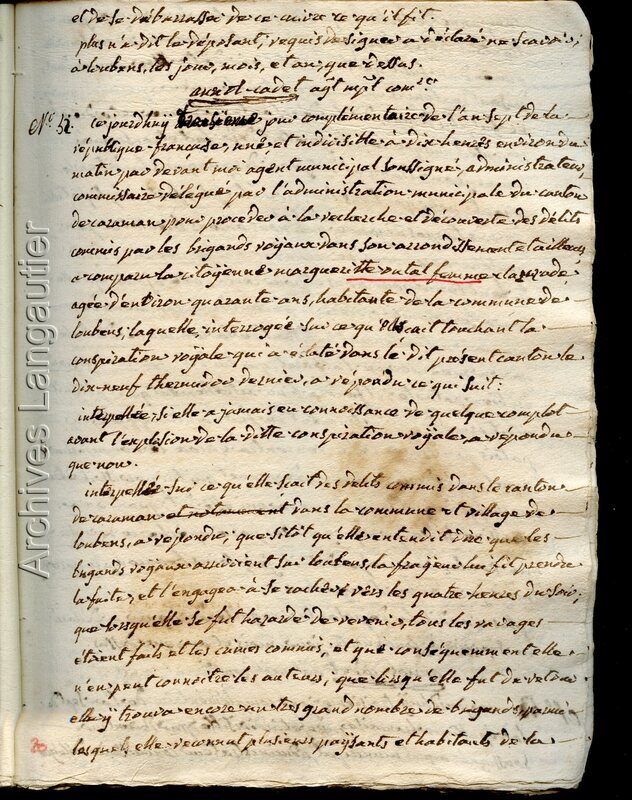 et de se débarrasser de ce cuivre ce qu'il fit.
plus n'a dit le déposant, requis de signer a déclaré ne scavoir,
à loubens, les jour, mois, et an, que dessus.
cadet agt mpl comre
No. 51. ce jourdhuy troisième jour complémentaire de l'an sept de la
république française, une et indivisible à dix heures environ du
matin par devant moi agent municipal soussigné, administrateur,
commissaire délégué par l'administration municipale du canton
de caraman pour procéder à la recherche et découverte des délits
commis par les brigands royaux dans son arrondissement et ailleurs
a comparu la citoyenne margueritte vutal femme
agée d'environ quarante ans, habitante de la commune de
loubens, laquelle, interrogée sur ce qu'elle scait touchant la
conspiration royale qui a éclaté dans le dit présent canton le
dix-neuf thermidor dernier, a répondu ce qui suit:
interpellée, si elle a jamais eu connoissance de quelque complot
avant l'explosion de la ditte conspiration royale, a répondu
que non.
interpellée sur ce qu'elle scait des délits commis dans le canton
de caraman et notamment dans la commune et village de
loubens, a répondu, que sitôt qu'elle entendit dire que les
brigands royaux arrivoient sur loubens, la frayeur lui fit prendre
la fuite, et l'engagea à se cacher vers les quatre heures du soir;
que lorsqu'elle se fut hazardé de revenir, tous les ravages
étoient faits et les crimes commis, et que conséquemment elle
n'en peut connoitre les auteurs; que lorsqu'elle fut de retour
elle y trouva encore un tres grand nombre de brigands, parmi
lesquels elle reconnut plusieurs paysants et habitants de la
20
Archives Langautier